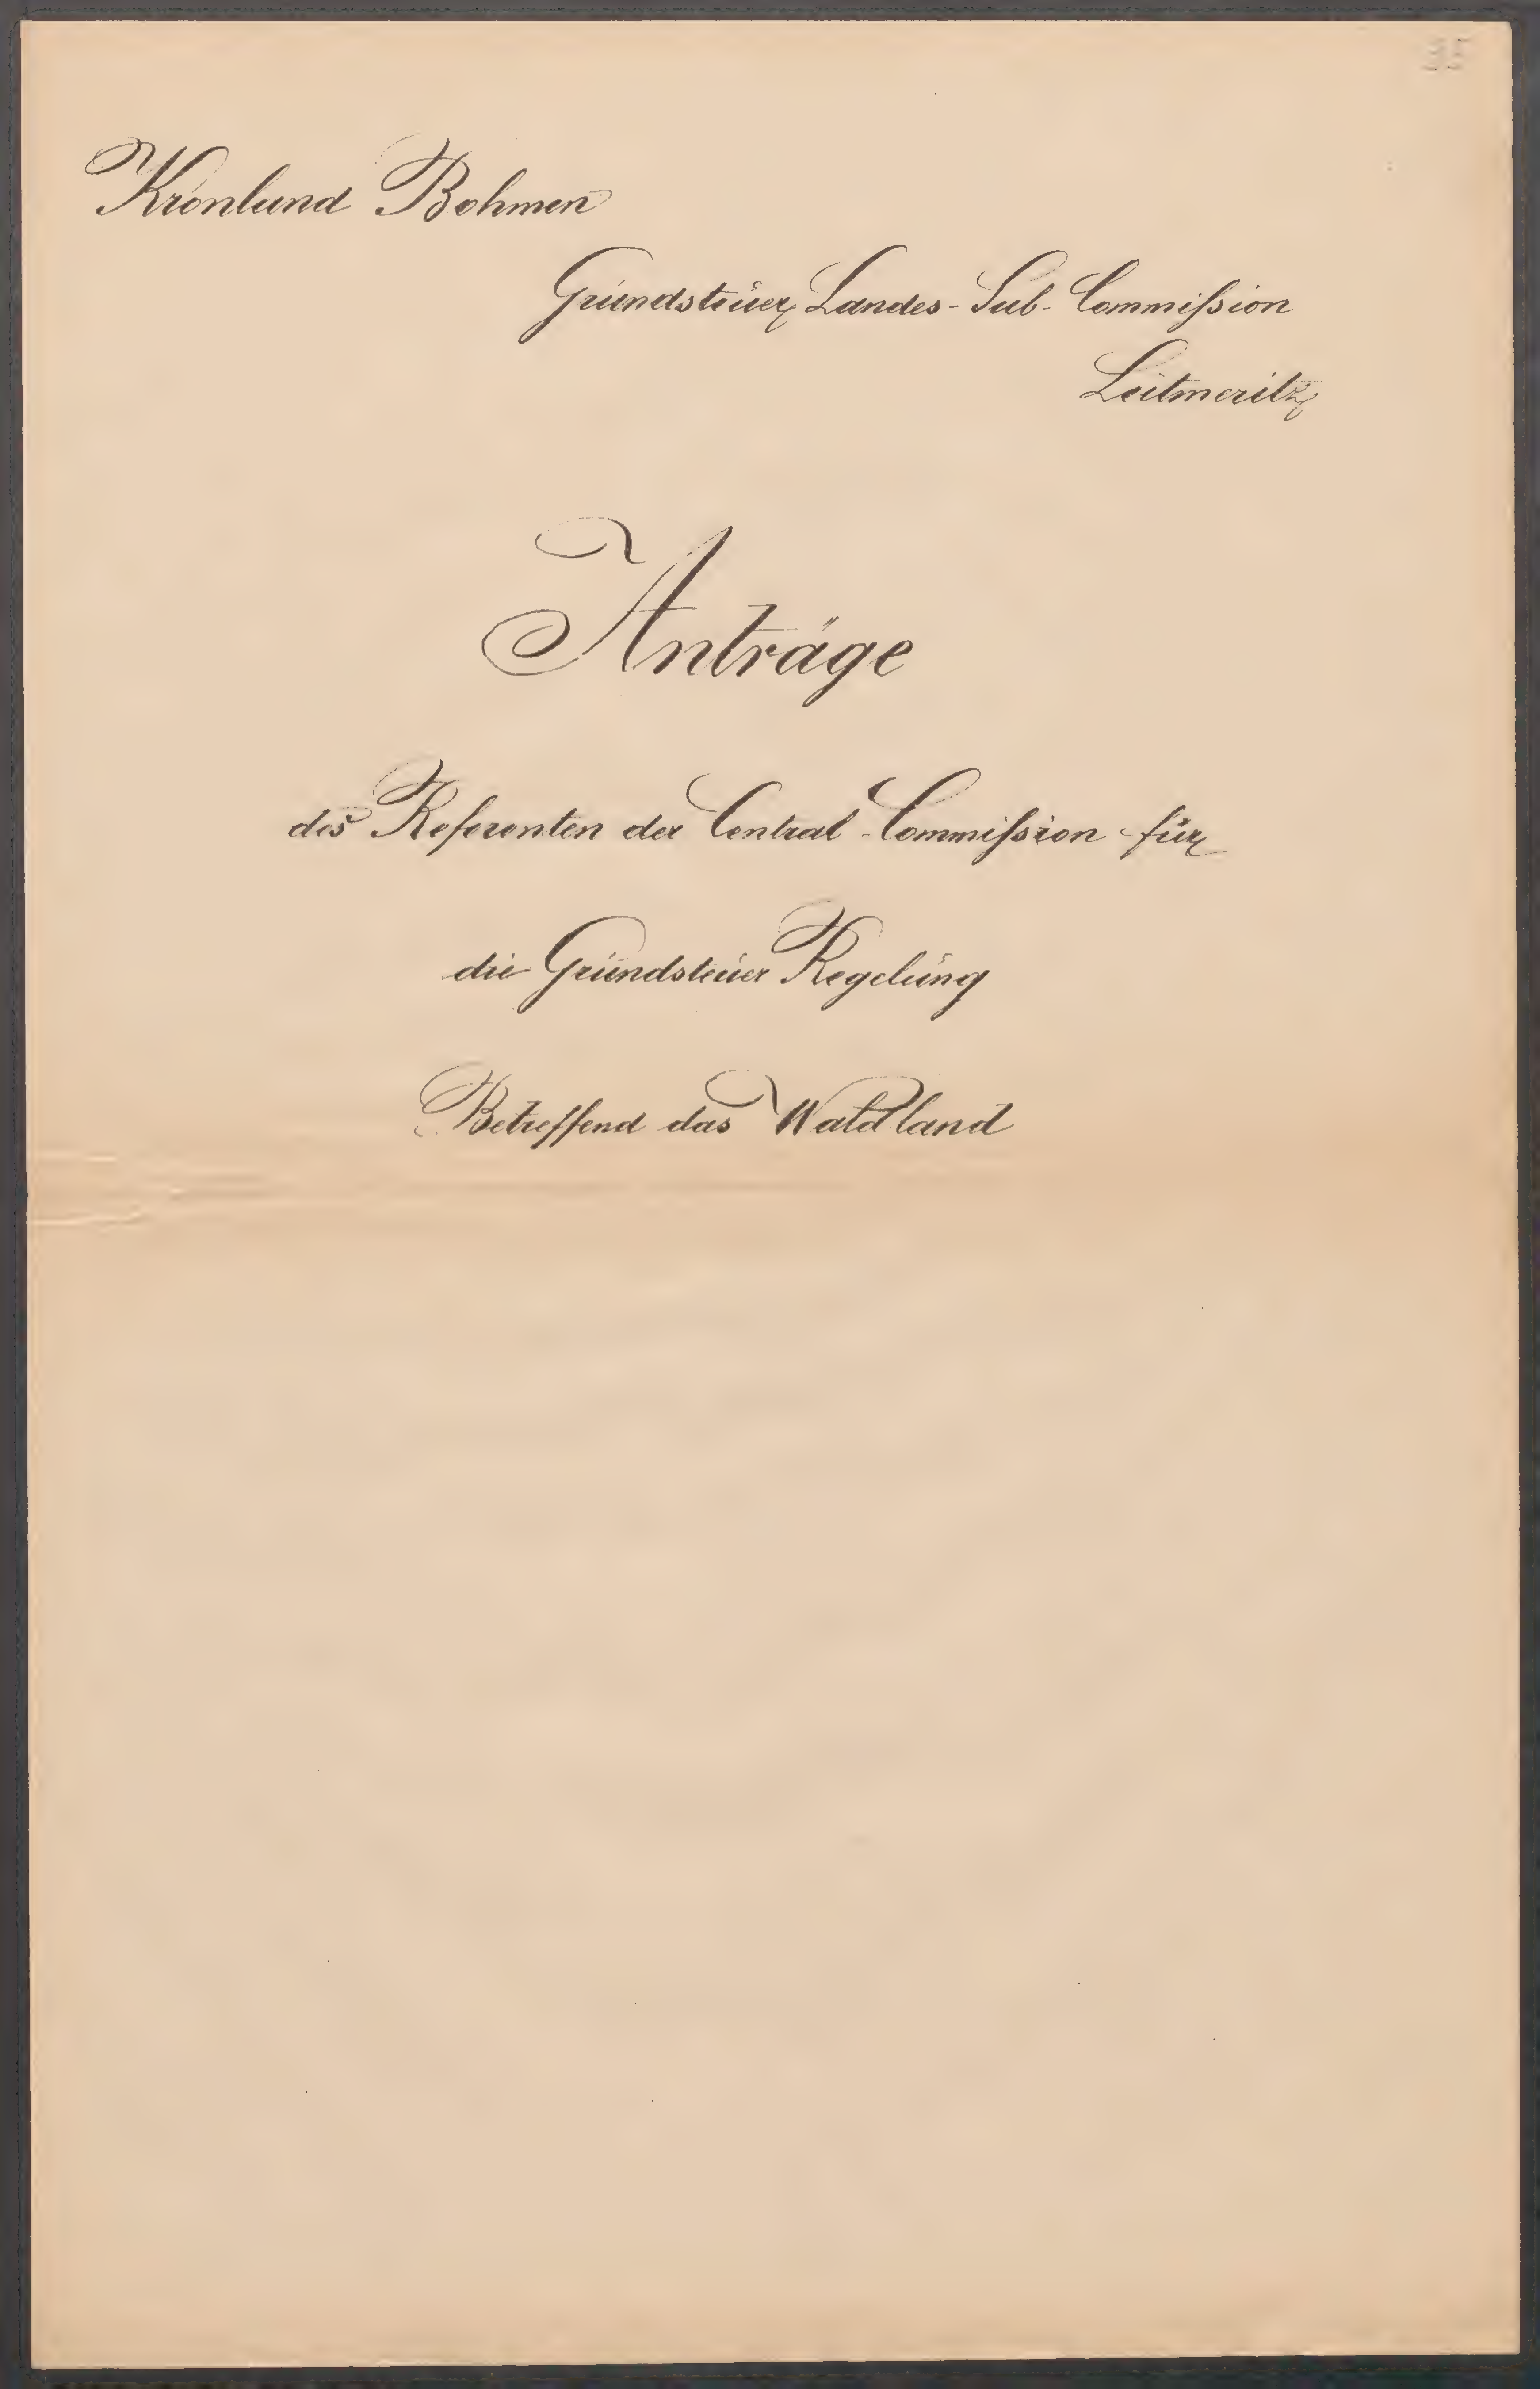 35
Kronland Bohmen
Grundsteuer Landes-Sub-Commißion
Leitmeritz
Anträge
des Referenten der Central-Commißion für
die Grundsteuer Regelung
Betreffend das Waldland